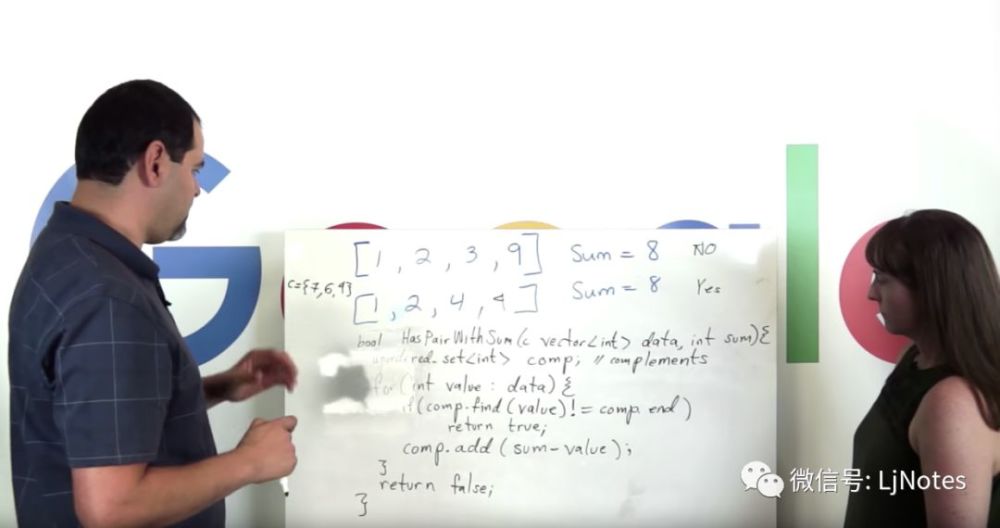 [1, 2, 3, 9] Sum = 8 NO
c={7,6,4}
[1, 2, 4, 4] Sum = 8 Yes
bool HasPairWithSum(c vector<int> data, int sum){
unordered_set<int> comp; // complements
for (int value : data) {
if(comp.find(value)!= comp.end)
return true;
comp.add(sum-value);
}
return false;
}
微信号: LjNotes